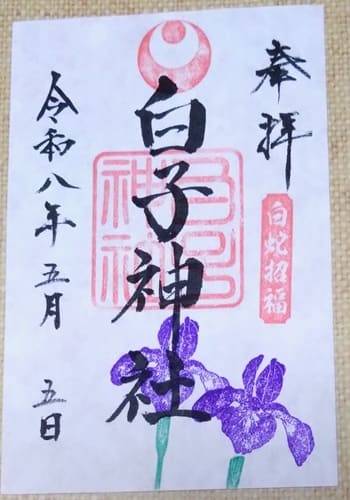 奉拝
白蛇招福
白子神社
令和八年五月五日